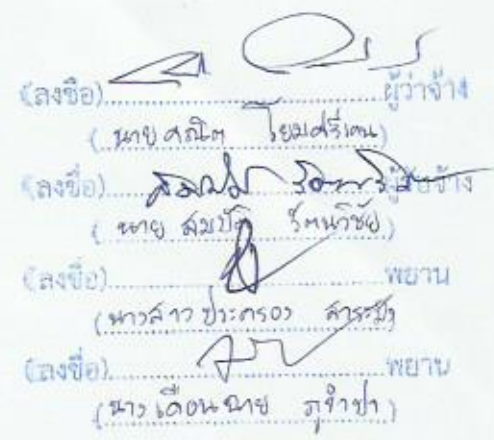 (ลงชื่อ)..............................ผู้ว่าจ้าง
( นาย คณิต โยมศรีเคน )
(ลงชื่อ)..............................ผู้รับจ้าง
( นาย สมบัติ รัตนวิชัย )
(ลงชื่อ)..............................พยาน
( นางสาว ประครอง )
(ลงชื่อ)..............................พยาน
( นาง เดือนฉาย )